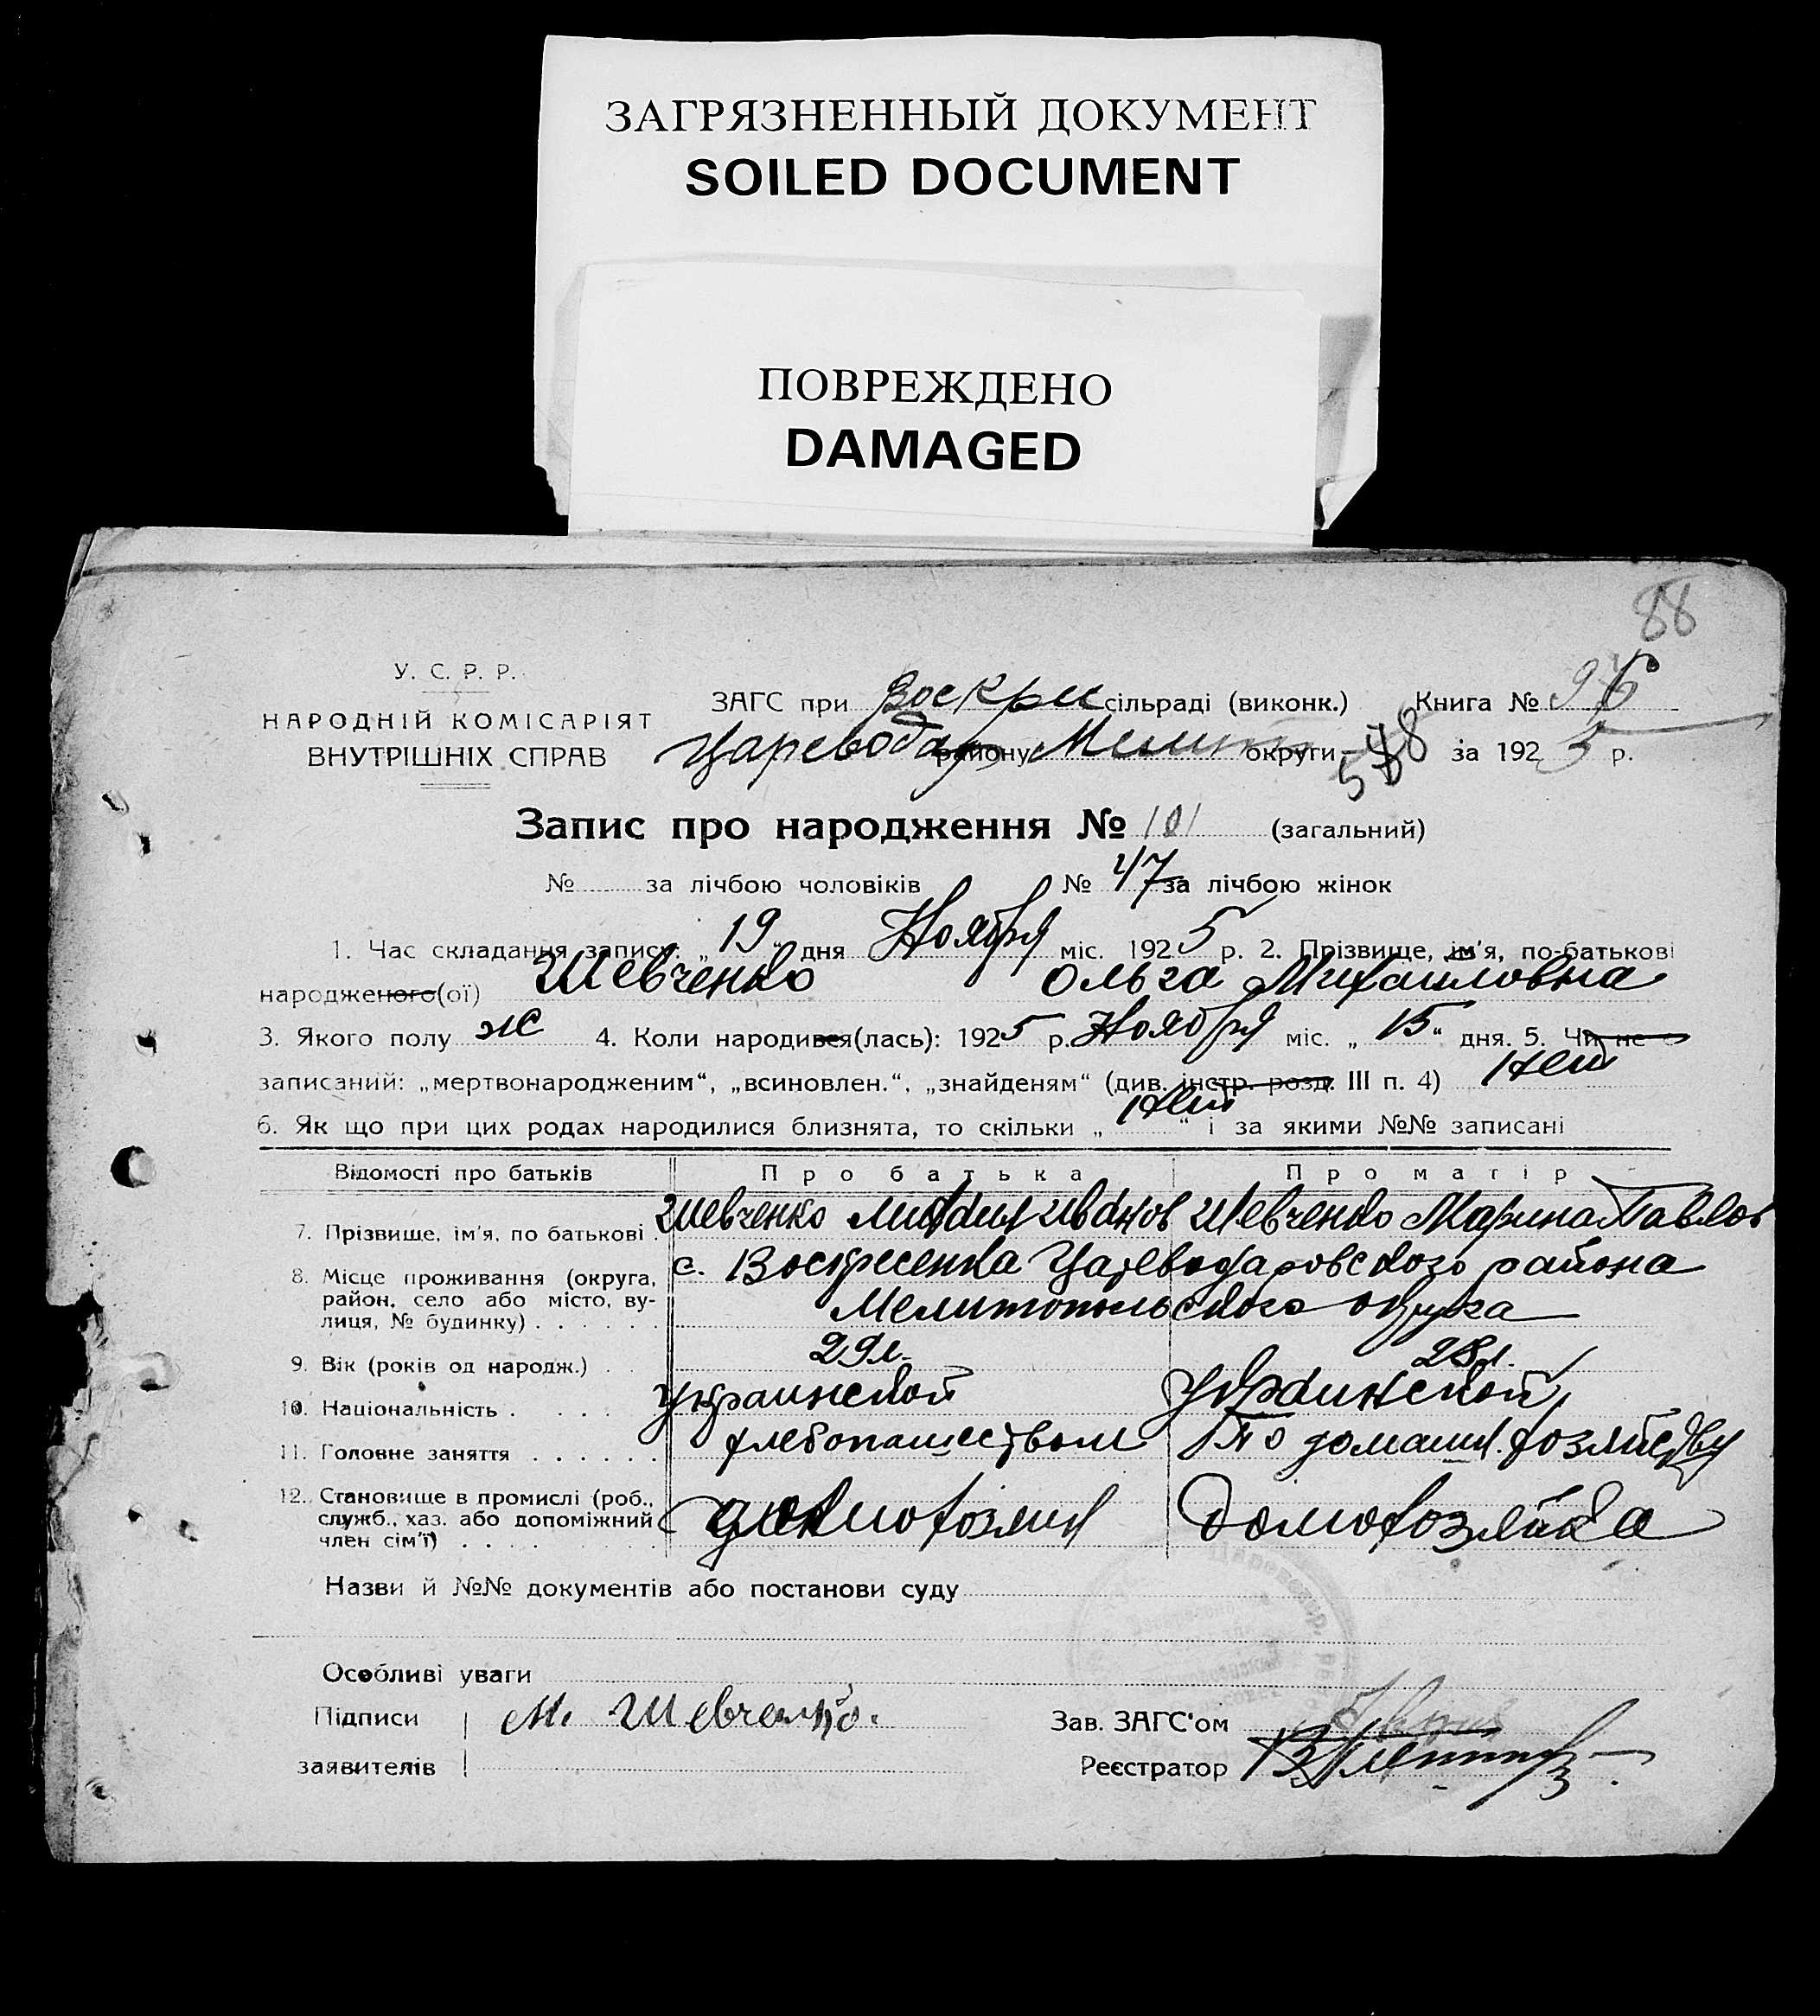 ЗАГРЯЗНЕННЫЙ ДОКУМЕНТ
SOILED DOCUMENT
ПОВРЕЖДЕНО
DAMAGED
88
У. С. Р. Р.
НАРОДНІЙ КОМІСАРІЯТ
ВНУТРІШНІХ СПРАВ
ЗАГС при Воскри сільраді (виконк.) Книга №
Цареводар району Мелит округи за 1925 р.
Запис про народження № 101 (загальний)
№ за лічбою чоловіків № 47 за лічбою жінок
1. Час складання запису: „19" дня Ноября міс. 1925 р. 2. Прізвище, ім'я, по-батькові
народженого(ої) Шевченко Ольга Михаиловна
3. Якого полу ж 4. Коли народився(лась): 1925 р. Ноября міс. „15" дня. 5. Чи не
записаний: „мертвонародженим", „всиновлен.", „знайденям" (див. інстр. розд. III п. 4) Нет
6. Як що при цих родах народилися близнята, то скільки „Нет" і за якими №№ записані
Відомості про батьків Про батька Про матір
7. Прізвище, ім'я, по батькові . Шевченко Михаил Иванов Шевченко Марина Павлов
8. Місце проживання (округа, с. Воскресенка Цареводаровского района
район, село або місто, ву- Мелитопольского округа
лиця, № будинку) . . . . . .
9. Вік (років од народж.) . . 29 л. 28 л.
10. Національність . . . . . Украинской Украинской
11. Головне заняття . . . . . . хлебопашеством По домашн. хозяйству
12. Становище в промислі (роб., домохозяин домохозяйка
служб., хаз. або допоміжний
член сім'ї) . . . .
Назви й №№ документів або постанови суду
Особливі уваги
Підписи М. Шевченко. Зав. ЗАГС'ом
заявителів Реєстратор